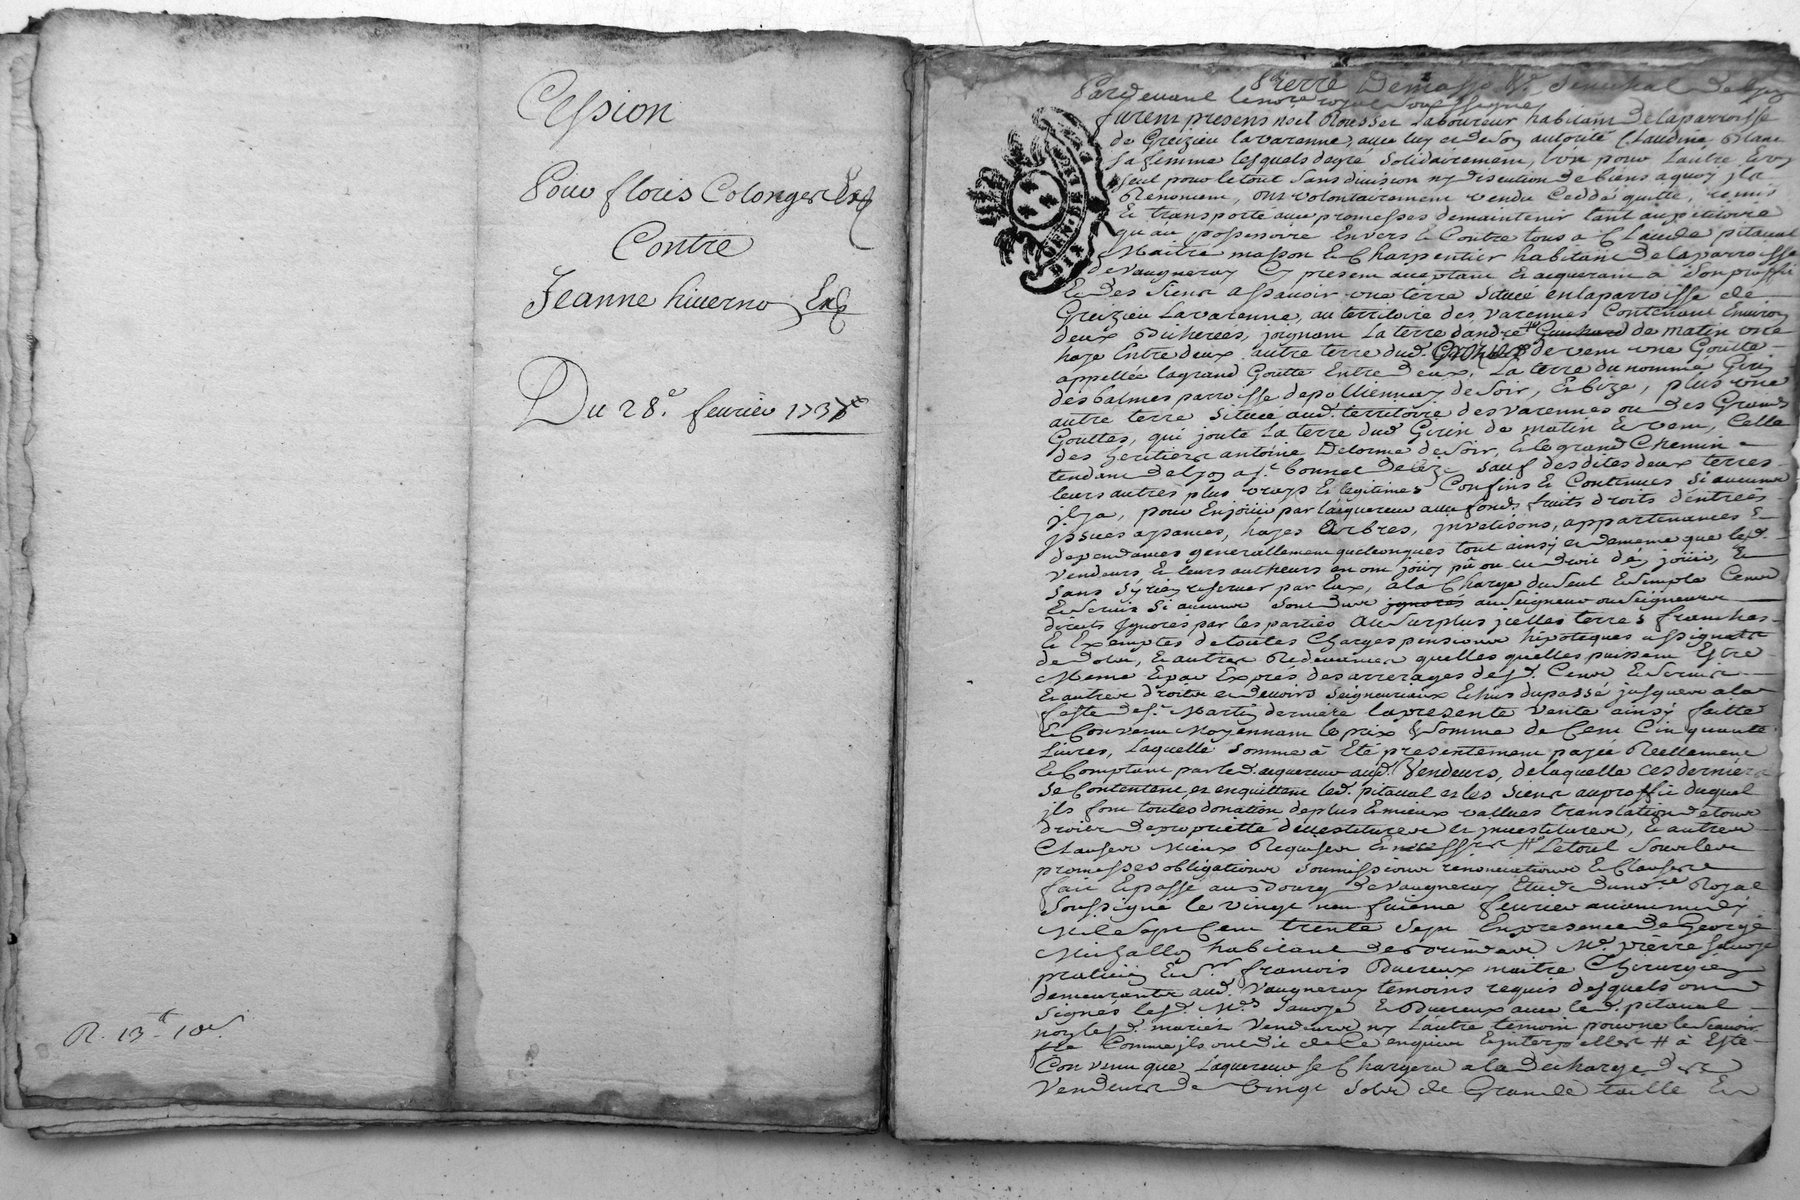 Cession
Pour floris Colonges
Contre
Jeanne hiverno
Du 28e. fevrier 1737
R. 13 10s
GEN. DE LYON
DIX DEN
Pierre Demasso Sr. Senechal de Lyon
Pardevant le nore. royal soussigné
furent presens noël Rousset Laboureur habitant de la parroisse
de Greizieu lavarenne, avec luy et de son autorité Claudine
sa femme lesquels de gré solidairement, l'un pour l'autre, un
seul pour le tout sans division ny discution de biens a quoy ils
Renoncent, ont volontairement vendu Ceddé quitté, remis
Et transporté avec promesses de maintenir tant au petitoire
qu'au possessoire Envers et Contre tous a Claude pitaval
Maitre masson Et Charpentier habitant de la parroisse
de Vaugneray Cy present acceptant Et acquerant a son proffit
Et des siens assavoir une terre située en la parroisse de
Greizieu Lavarenne, au territoire des varennes Contenant Environ
deux Bicherées, joignant La terre d'andré de matin une
haye Entre deux, autre terre dud. de vent une Goutte
appellée la grand Goutte Entre deux, La terre du nommé Girin
des balmes parroisse de polliennay de soir, Et bize, plus une
autre terre située aud. territoire des varennes ou des Grands
Gouttes, qui joute La terre dud. Girin de matin Et vent, Celle
des heritiers antoine Delorme de soir, Et le grand Chemin
tendant de Lyon a st. bonnet de bize sauf desdites deux terres
leurs autres plus vrays Et legitimes Confins Et Contenues si aucuns
il y a, pour En jouir par l'acquereur avec fonds, fruits droits d'entrées
issues aysances, hayes Arbres, invetisons, appartenances Et
dependances generallement quelconques tout ainsy et de meme que led.
vendeurs Et leurs autheurs en ont jouy pû ou eu droit de jouir, Et
sans s'y rien reserver par Eux, a la Charge du seul Et simple Cens
Et servis si aucuns sont dus ignorés au seigneur ou seigneurs
directs Ignorés par les parties Au surplus icelles terres franches
Et Exemptes de toutes Charges pensions hipoteques assignats
de dots, Et autres Redevances quelles quelles puissent Estre
Meme Et par Exprés des arrerages desd. Cens Et servis
Et autres droits et devoirs seigneuriaux Echus du passé jusques a la
feste de st. Martin derniere la presente vente ainsy faitte
Et Convenue Moyennant le prix Et somme de Cent Cinquante
Livres, Laquelle somme a Eté presentement payée Reellement
Et Comptant par led. acquereur aud. Vendeurs, de laquelle ces derniers
se Contentent et en quittent led. pitaval et les siens au proffit duquel
ils font toutes donation de plus Et mieux vallues translation de tous
droits de proprietté devestitures et investitures, Et autres
Clauses Mieux Requises Et necessres # Le tout sous leurs
promesses obligations soumissions renonciations Et Clauses
fait Et passé au bourg de Vaugneray Etude du nore. Royal
soussigné le vingt neufvieme fevrier avant midy
Mil sept Cent trente sept En presence de George
habitant de Mr. pierre
praticien Et sr. francois Ducreux maitre Chirurgien
demeurants aud. Vaugneray temoins requis desquels ont
signés lesd. Mrs. Et Ducreux avec led. pitaval
non lesd. mariés Vendeurs ny L'autre temoin pour ne le sçavoir
fre Comme ils ont dit de Ce enquis Et interpellés # a Esté
Convenu que L'acquereur se Chargera a la decharge des
Vendeurs de Vingt sols de Grande taille Et